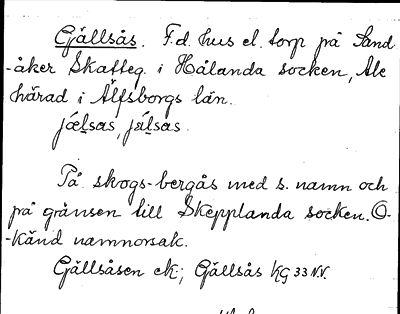 Gällsås. F.d. hus el. torp på Sand
-åker Skatteg. i Hålanda socken, Ale
härad i Älfsborgs län.
jæḷsas, jáḷsas.
På skogs-bergås med s. namn och
på gränsen till Skepplanda socken. O-
-känd namnorsak.
Gällsåsen ek.; Gällsås KG 33 NV.